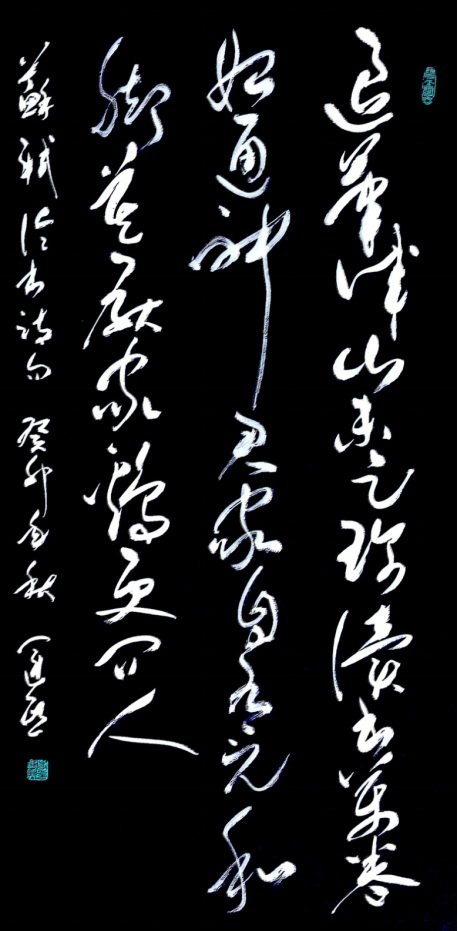 退筆成山未足珍讀書萬卷
始通神君家自有元和
腳莫厭家鷄更问人
蘇軾论书诗句 癸卯金秋